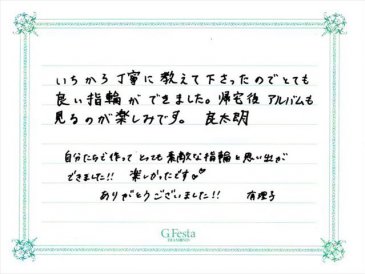 いちから丁寧に教えて下さったのでとても
良い指輪ができました。帰宅後アルバムも
見るのが楽しみです。 良太朗
自分たちで作ってとっても素敵な指輪と思い出が
できました!! 楽しかったです♡
ありがとうございました!! 有理子
G.Festa